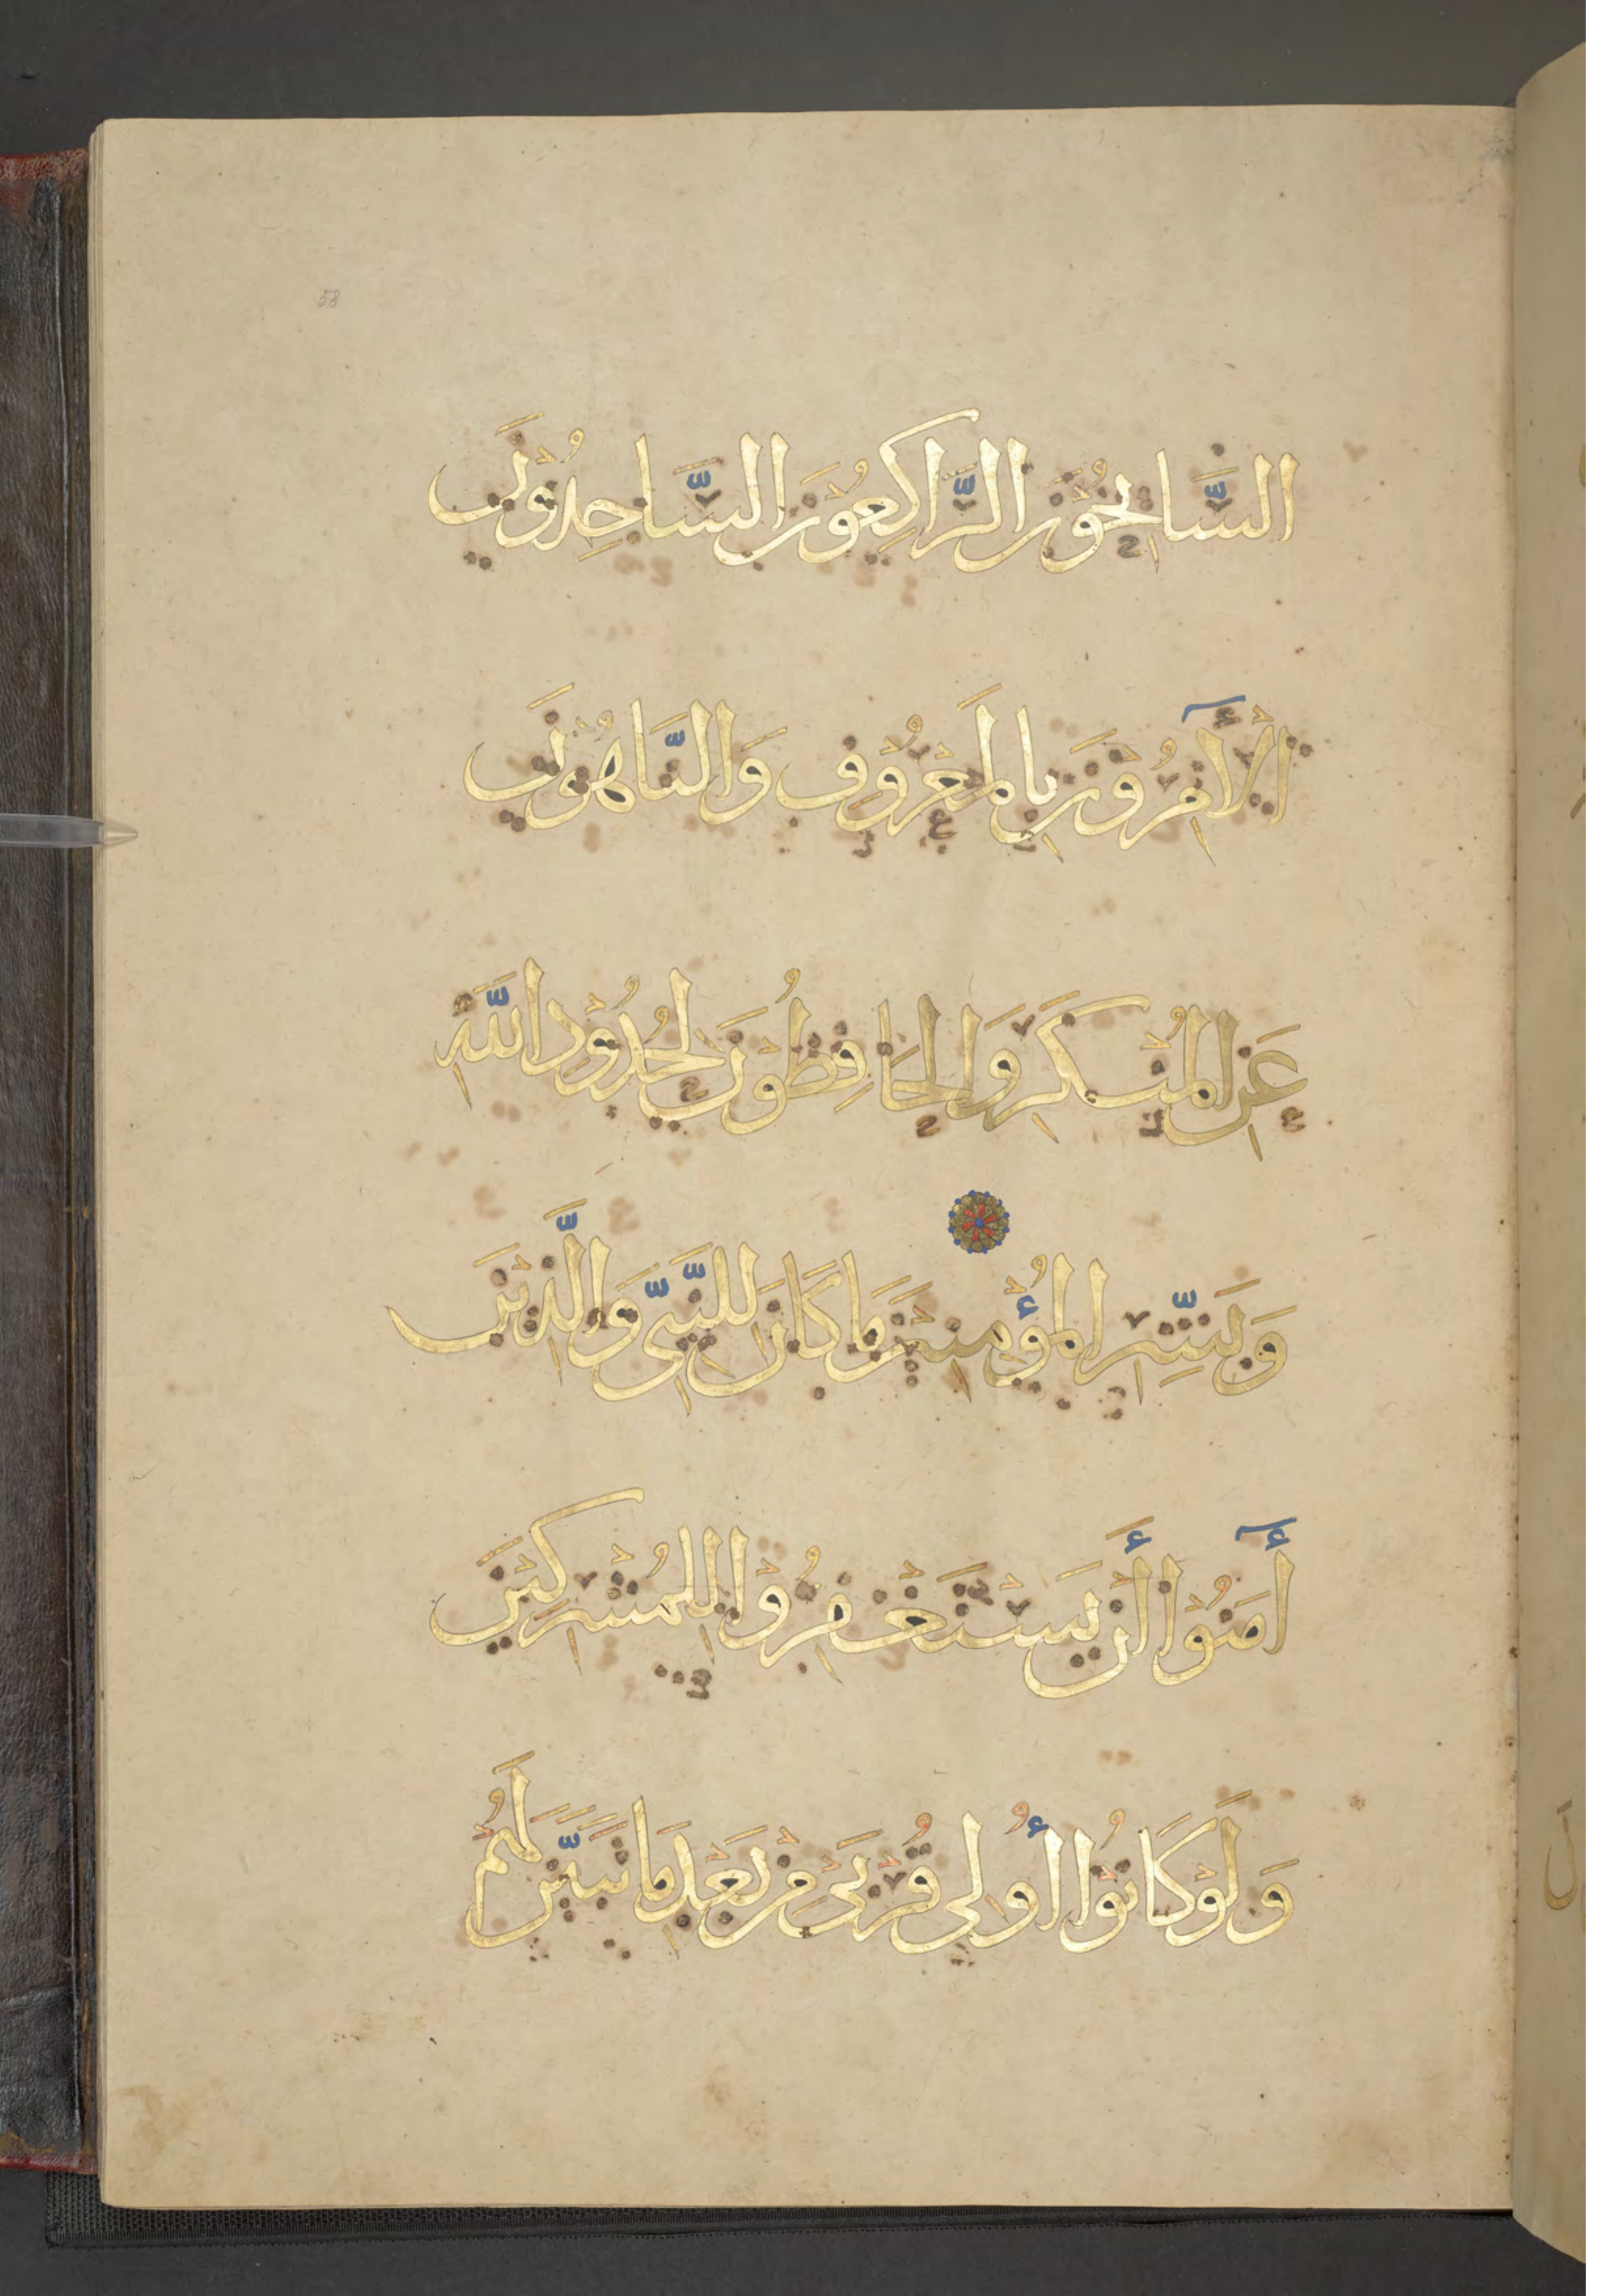 58
السَّايحُوْنَ الرَّاكِعُوْنَ السَّاجِدُوْنَ
الْأَمِرُوْنَ بِالْمَعْرُوْفِ وَالنَّاهُوْنَ
عَنِ الْمُنْكَرِ وَالْحَافِظُوْنَ لِحُدُوْدِ اللَّهِ
وَبَشِّرِ الْمُؤْمِنِيْنَ مَا كَانَ لِلنَّبِيِّ وَالَّذِيْنَ
أٓمَنُوْا أَنْ يَسْتَغْفِرُوْا لِلْمُشْرِكِيْنَ
وَلَوْ كَانُوْا أُولِي قُرْبَى مِنْ بَعْدِ مَا تَبَيَّنَ لَهُمْ